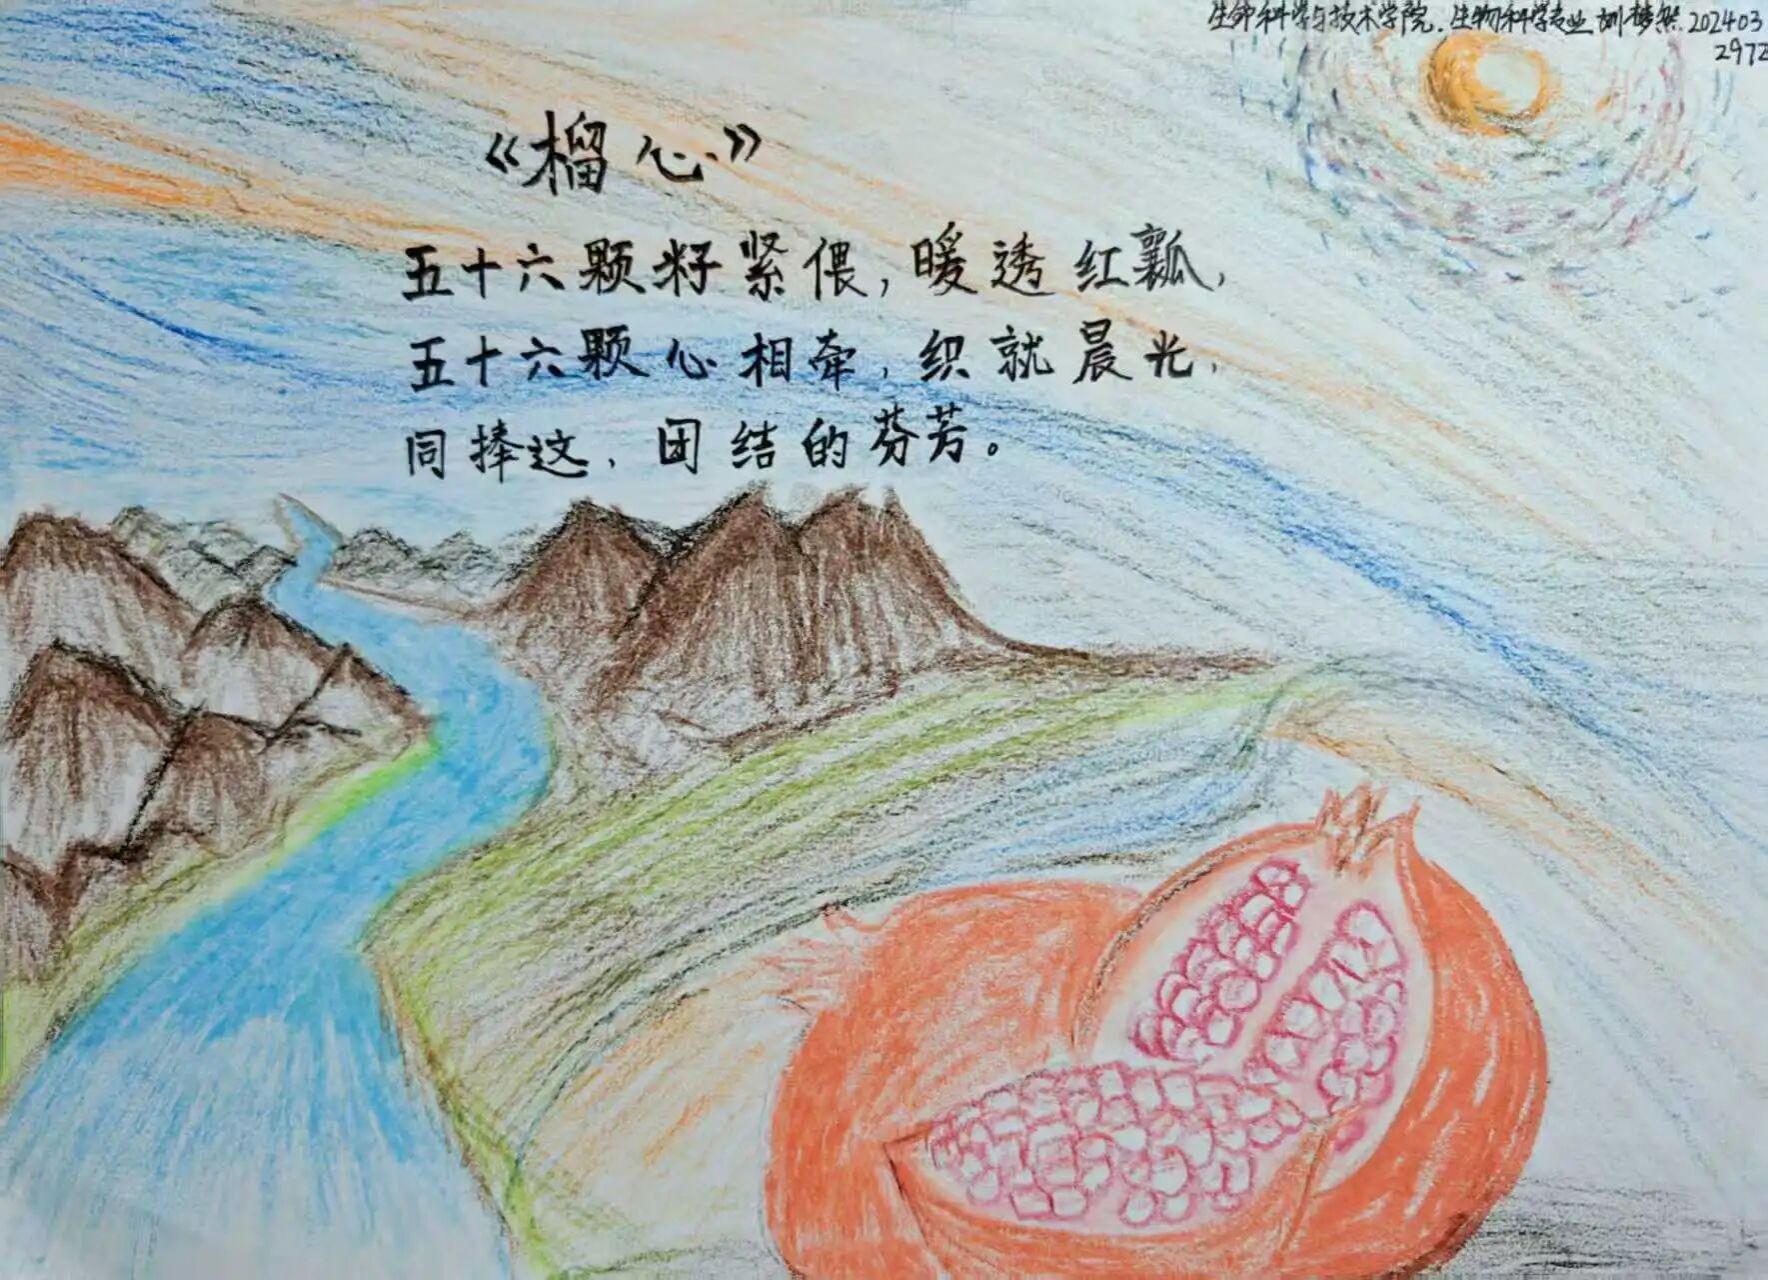 生命科学与技术学院.生物科学专业 202403
2972
《榴心》
五十六颗籽紧偎,暖透红瓤,
五十六颗心相牵,织就晨光,
同捧这,团结的芬芳。